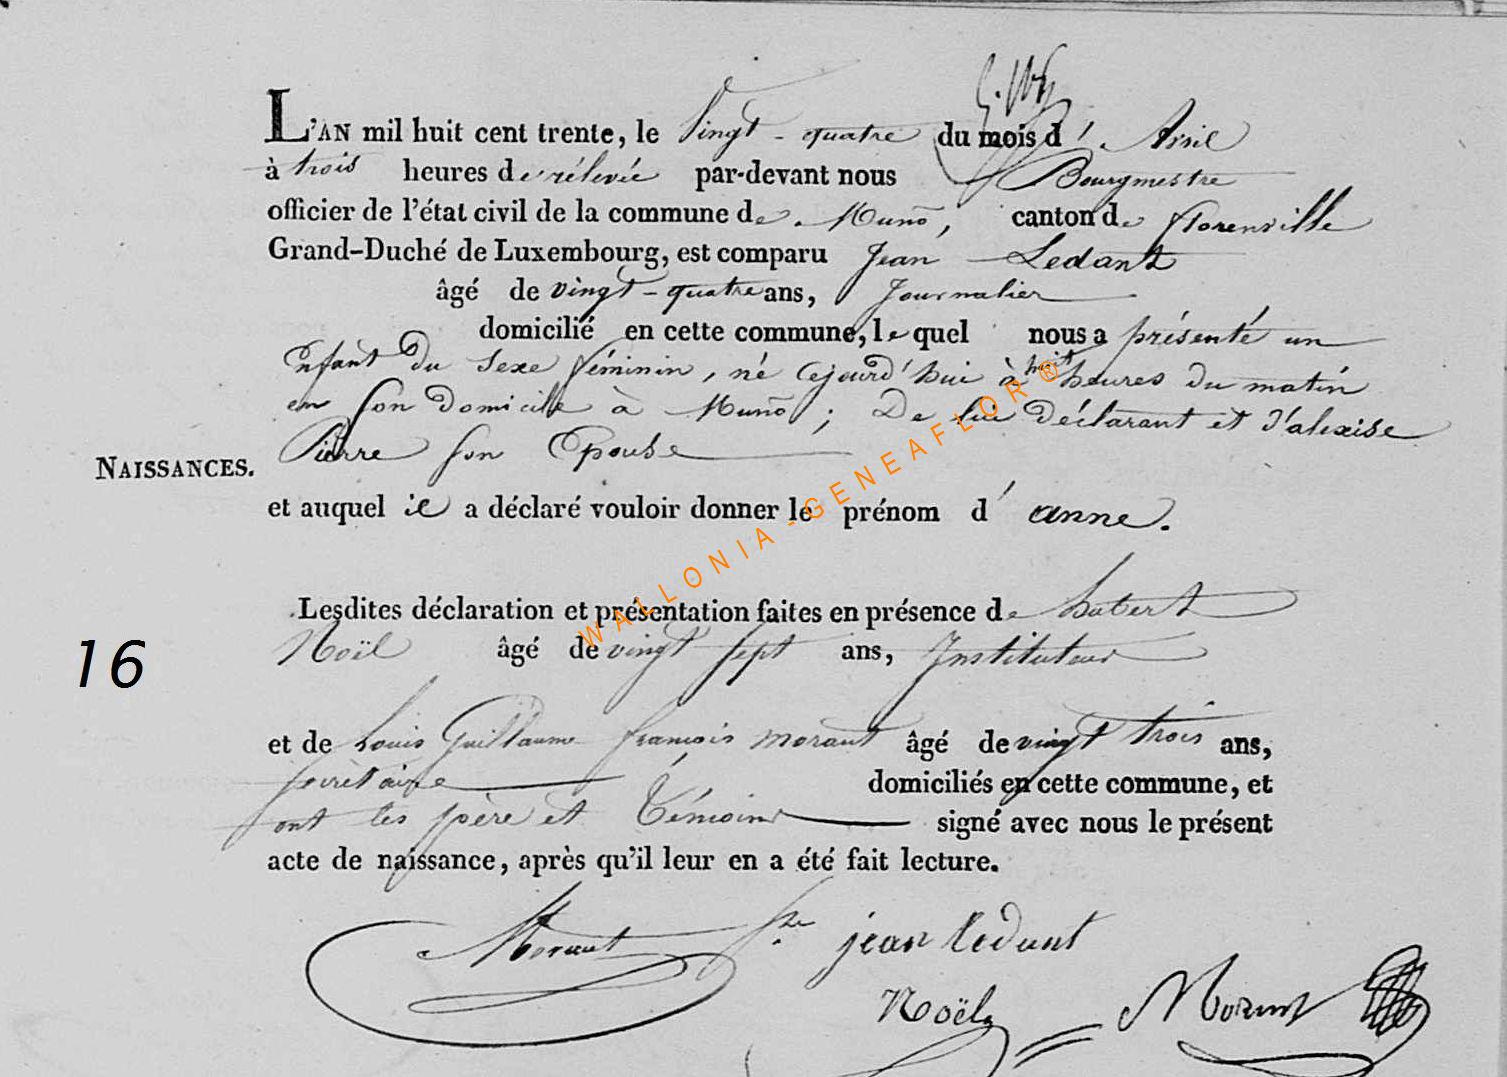 L'AN mil huit cent trente, le Vingt-quatre du mois d'Avril
à trois heures de rélevée par-devant nous Bourgmestre
officier de l'état civil de la commune de Muno, canton de florenville
Grand-Duché de Luxembourg, est comparu Jean Ledant
âgé de vingt-quatre ans, Journalier
domicilié en cette commune, lequel nous a présenté un
Enfant du Sexe féminin, né cejourd'hui à huit heures du matin
en son Domicile à Muno; De lui déclarant et d'alexise
Pierre son Epouse
NAISSANCES.
et auquel il a déclaré vouloir donner le prénom d'anne.
Lesdites déclaration et présentation faites en présence de hubert
Noël âgé de vingt sept ans, Instituteur
16
et de Louis Guillaume françois morant âgé de vingt trois ans,
secrètaire domiciliés en cette commune, et
ont les père et Témoins signé avec nous le présent
acte de naissance, après qu'il leur en a été fait lecture.
Morant jean ledant
Noël Morant
WALLONIA-GENEAFLOR®